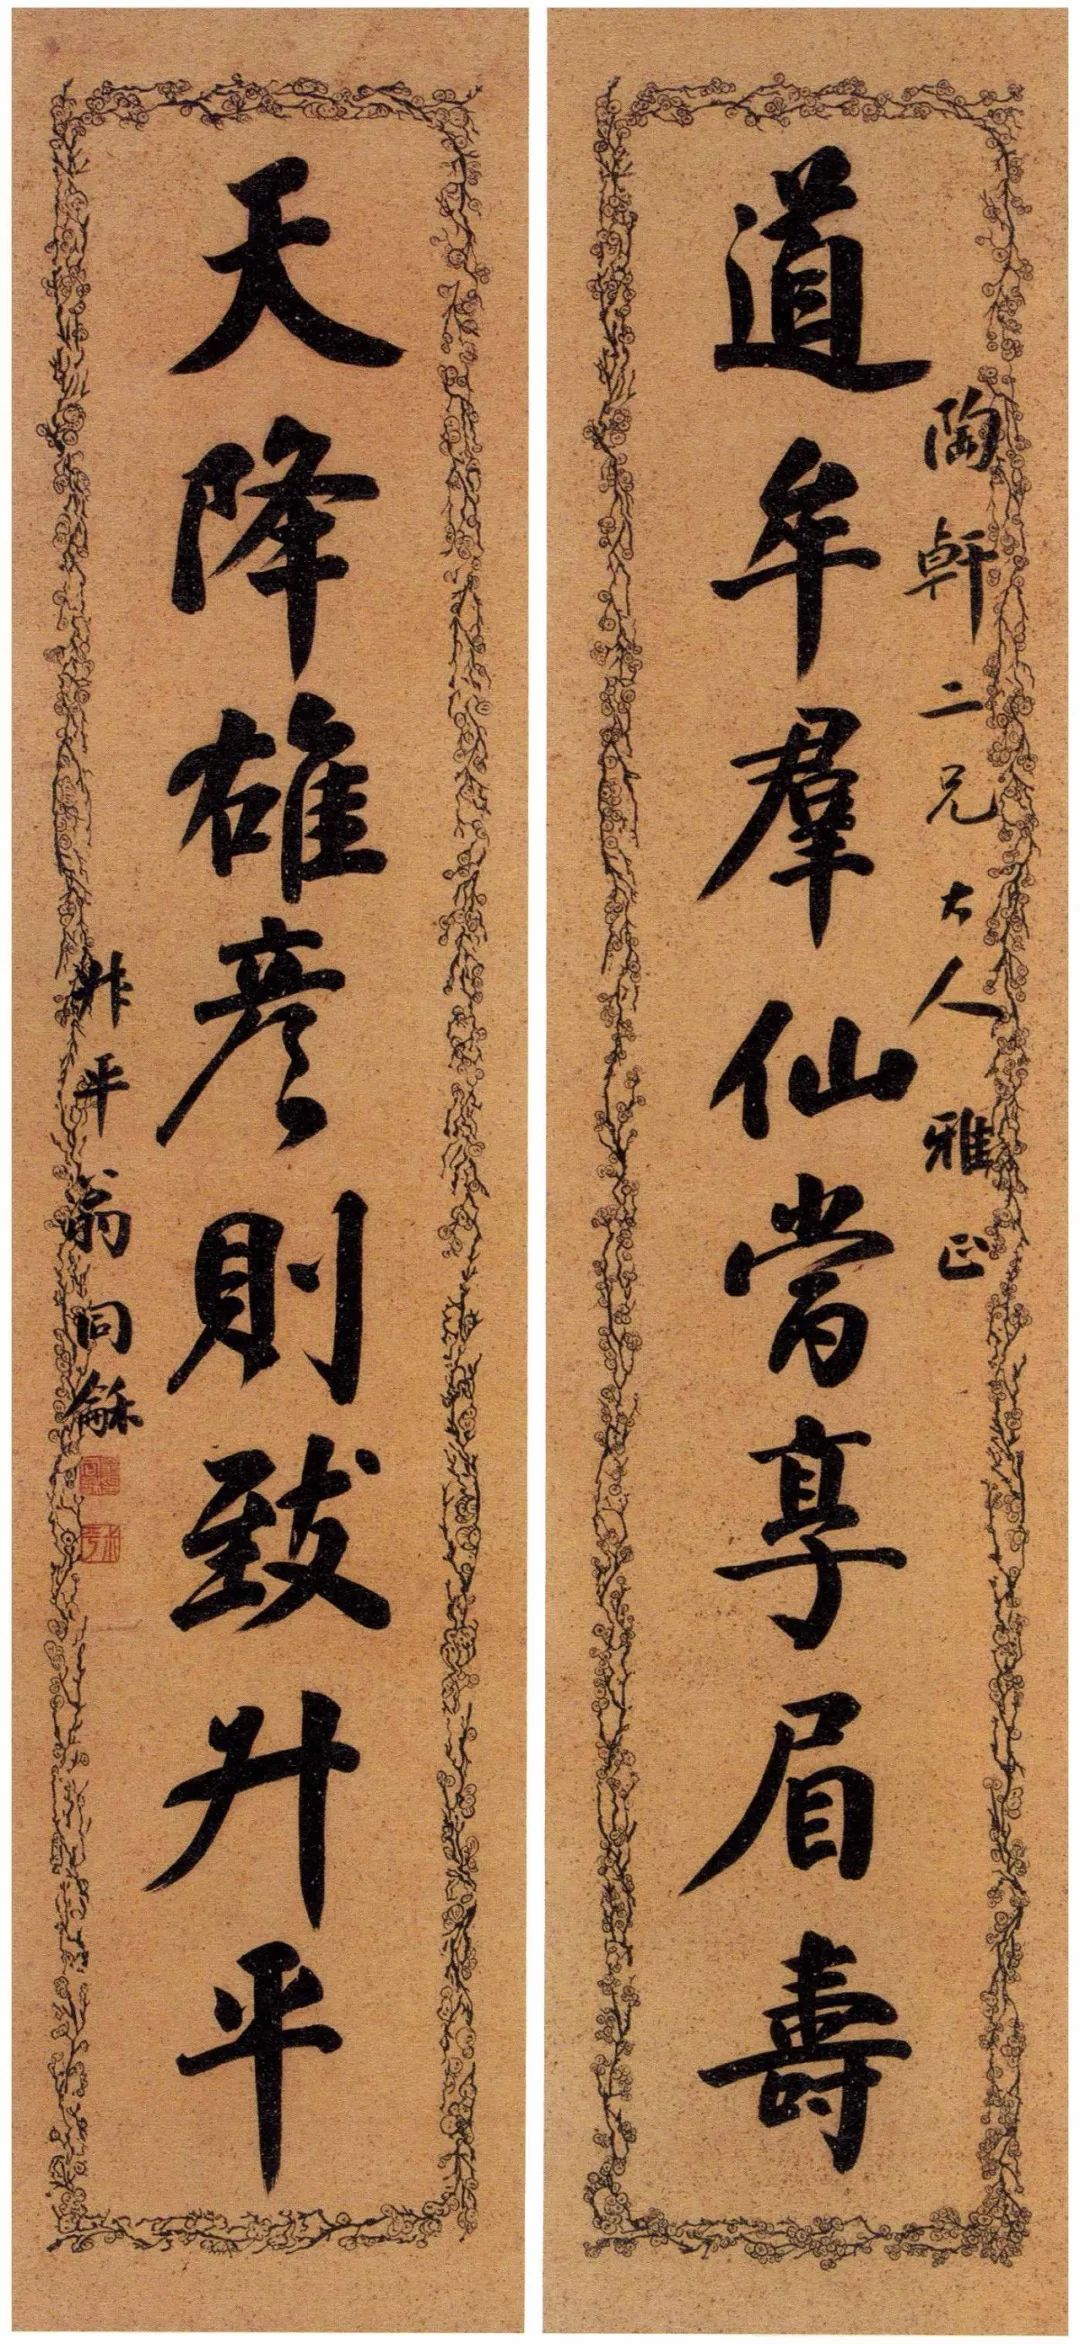 陶軒二兄大人雅正
道牟羣仙常享眉壽
天降雄彥則致升平
叔平翁同龢